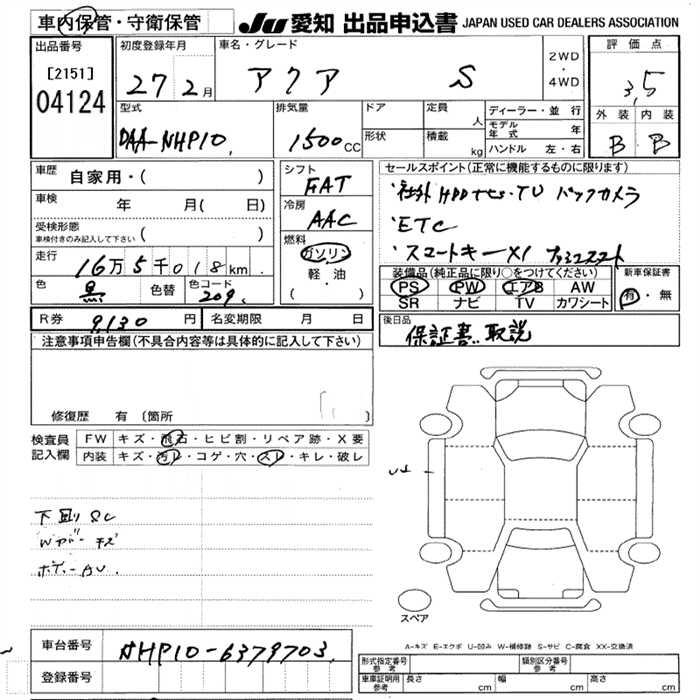 車内保管・守衛保管
JU 愛知 出品申込書 JAPAN USED CAR DEALERS ASSOCIATION
出品番号
[2151]
04124
初度登録年月
27 2月
車名・グレード
アクア S
2WD
・
4WD
評価点
3,5
型式
DAA-NHP10
排気量
1500CC
ドア
形状
定員
人
積載
kg
ディーラー・並行
モデル年式 年
ハンドル 左・右
外装 内装
B B
車歴
自家用・( )
車検
年 月( 日)
受検形態
車検付きのみ記入して下さい ( )
走行
16万5千018km
色
黒
色替
色コード
209
シフト
FAT
冷房
AAC
燃料
ガソリン
軽・油
( ・ )
セールスポイント(正常に機能するものに限ります)
・社外HDDナビ・TV バックカメラ
・ETC
・スマートキーX1 プッシュスタート
装備品(純正品に限り○をつけてください)
PS PW エアB AW
SR ナビ TV カワシート
新車保証書
有・無
R券 9,130円
名変期限 月 日
後日品
保証書、取説
注意事項申告欄(不具合内容等は具体的に記入して下さい)
修復歴 有 〔箇所 〕
検査員記入欄
FW キズ・飛石・ヒビ割・リペア跡・X要
内装 キズ・汚レ・コゲ・穴・スレ・キレ・破レ
下廻りSC
Wガバーキズ
ボディーAU
スペア
A-キズ E-エクボ U-凹み W-補修跡 S-サビ C-腐食 XX-交換済
車台番号
NHP10-6379703
登録番号
形式指定番号 参考
類別区分番号 参考
車庫証明用 参考
長さ cm 幅 cm 高さ cm